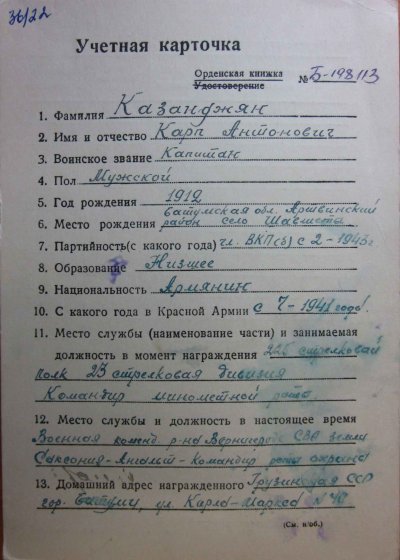 36/22
Учетная карточка
Орденская книжка
Удостоверение № Б-198113
1. Фамилия Казанджян
2. Имя и отчество Карп Антонович
3. Воинское звание Капитан
4. Пол Мужской
5. Год рождения 1912
батумская обл. Артвинский
6. Место рождения район село
7. Партийность(с какого года) чл. ВКП(б) с 2-1943г
8. Образование Низшее
9. Национальность Армянин
10. С какого года в Красной Армии с 7-1941 года.
11. Место службы (наименование части) и занимаемая
должность в момент награждения 225 стрелковой
полк 23 стрелковая дивизия
Командир минометной роты
12. Место службы и должность в настоящее время
Военная коменд. р-на Вернигероде СВА земли
Саксония-Ангальт-Командир роты охраны
13. Домашний адрес награжденного Грузинская ССР
гор. Батуми, ул. Карла-Маркса N
(См. н/об.)